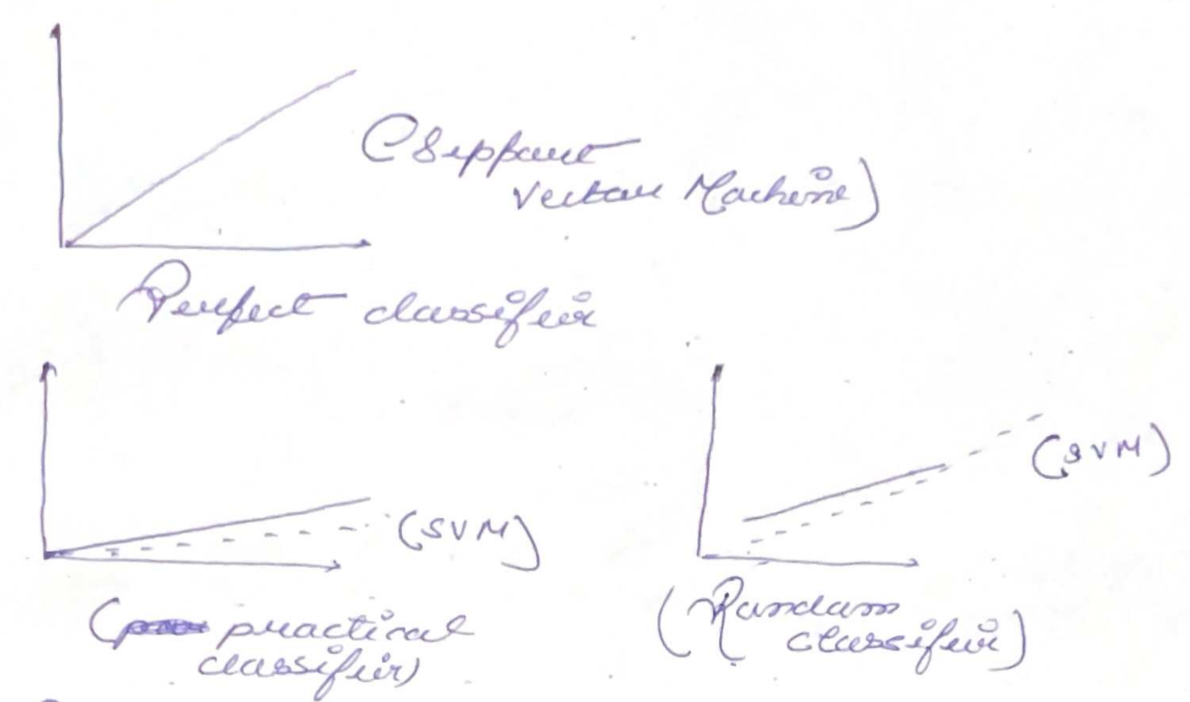 (Support
Vector Machine)
Perfect classifier
(SVM)
(SVM)
(practical
classifier)
(Random
classifier)